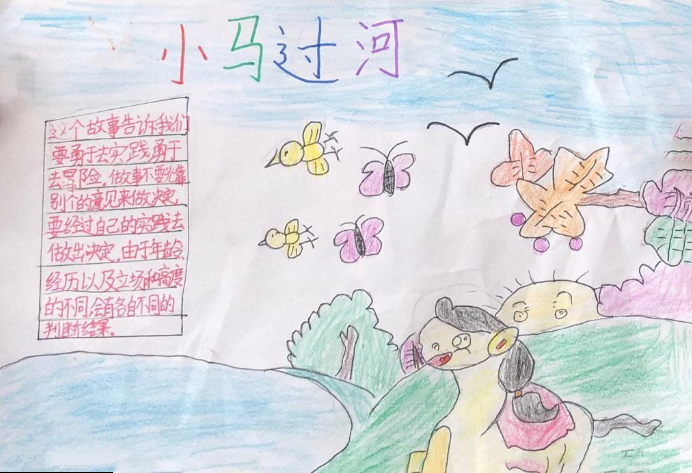 小马过河
这个故事告诉我们
要勇于去实践,勇于
去冒险。做事不要光靠
别个的意见来做决定,
要经过自己的实践去
做出决定,由于年龄
经历以及立场和高度
的不同,会有各自不同的
判断结果。